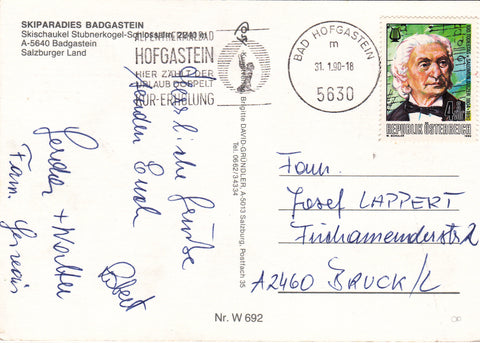 SKIPARADIES BADGASTEIN
Skischaukel Stubnerkogel-Schlossalm, 2240 m
A-5640 Badgastein
Salzburger Land
ALPENTHERMALBAD
HOFGASTEIN
HIER ZÄHLT DER
URLAUB DOPPELT
KUR-ERHOLUNG
BAD HOFGASTEIN
m
31. 1. 90-18
5630
REPUBLIK ÖSTERREICH
Herzliche Grüße
senden Euch
+ Walter
Robert
Fam.
Brigitte DAVID-GRÜNDLER, A-5013 Salzburg, Postfach 35
Tel. 0662/34334
Fam.
Josef LAPPERT
Fischamenderstr. 2
A2460 BRUCK/L
Nr. W 692